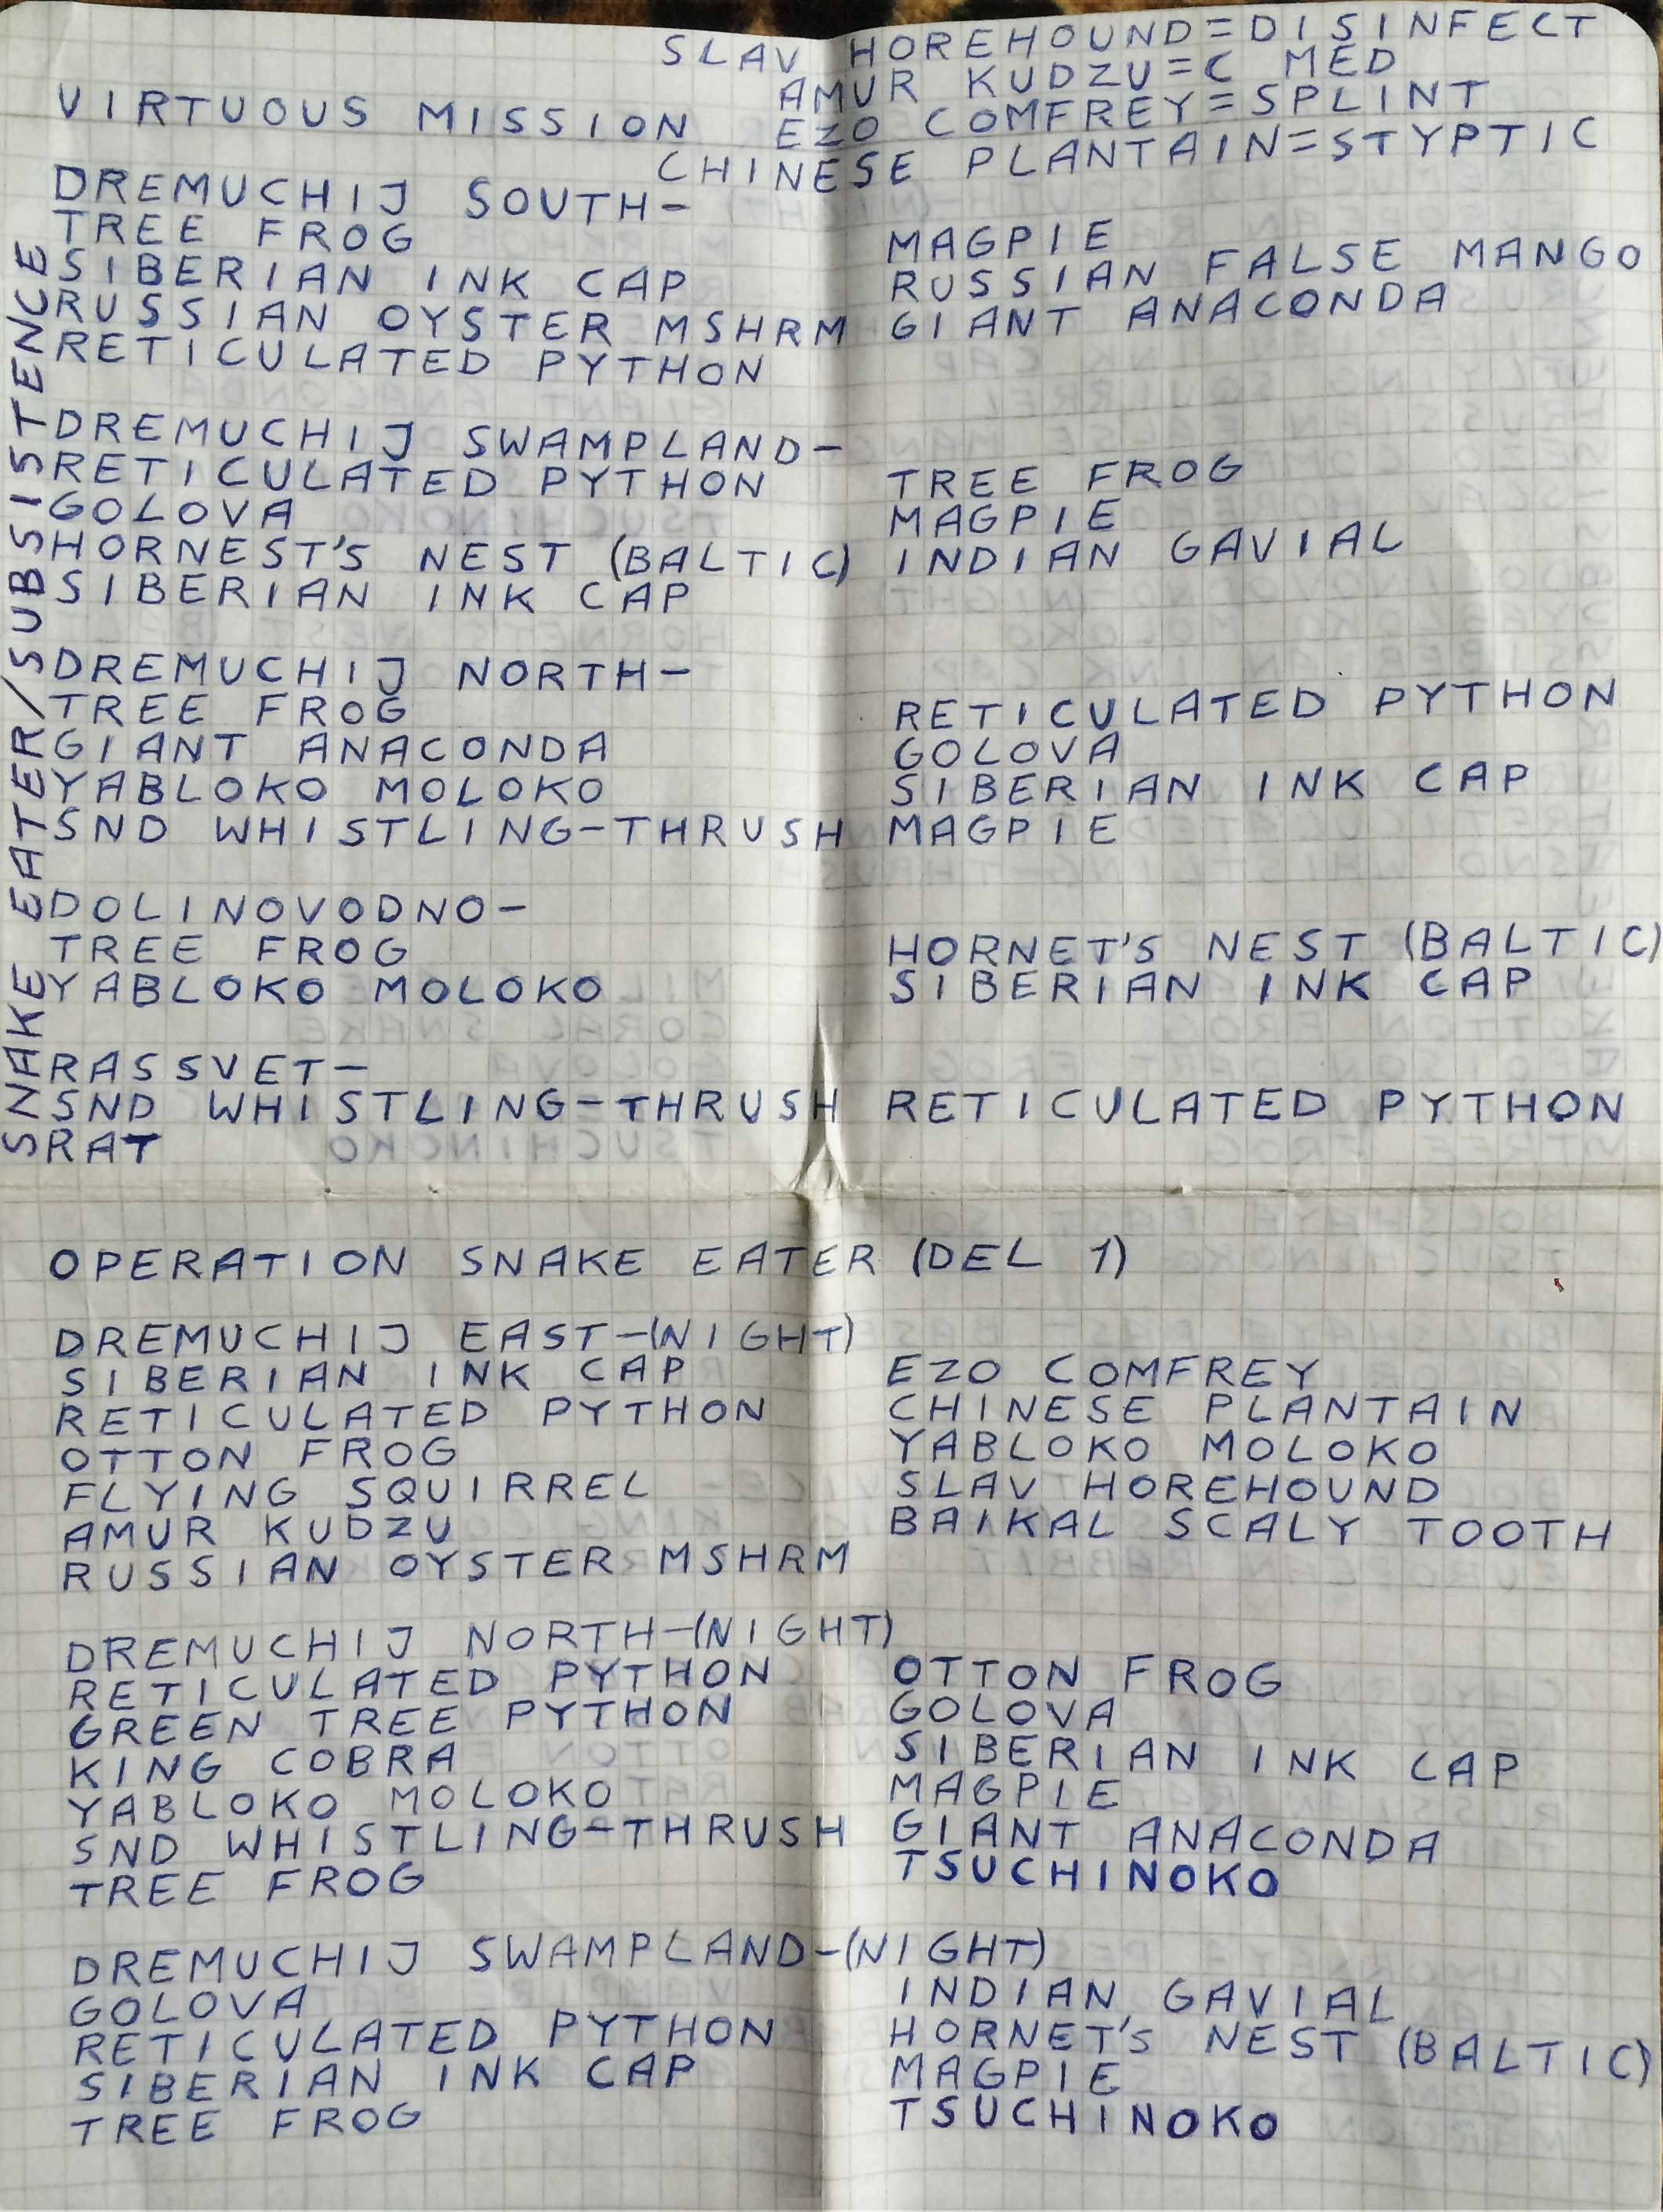 SLAV HOREHOUND=DISINFECT
AMUR KUDZU=C MED
VIRTUOUS MISSION
EZO COMFREY=SPLINT
CHINESE PLANTAIN=STYPTIC
SNAKE EATER/SUBSISTENCE
DREMUCHIJ SOUTH-
TREE FROG
SIBERIAN INK CAP
RUSSIAN OYSTER MSHRM
RETICULATED PYTHON
MAGPIE
RUSSIAN FALSE MANGO
GIANT ANACONDA
DREMUCHIJ SWAMPLAND-
RETICULATED PYTHON
GOLOVA
HORNEST'S NEST (BALTIC)
SIBERIAN INK CAP
TREE FROG
MAGPIE
INDIAN GAVIAL
DREMUCHIJ NORTH-
TREE FROG
GIANT ANACONDA
YABLOKO MOLOKO
SND WHISTLING-THRUSH
RETICULATED PYTHON
GOLOVA
SIBERIAN INK CAP
MAGPIE
DOLINOVODNO-
TREE FROG
YABLOKO MOLOKO
HORNET'S NEST (BALTIC)
SIBERIAN INK CAP
RASSVET-
SND WHISTLING-THRUSH
RAT
RETICULATED PYTHON
OPERATION SNAKE EATER (DEL 1)
DREMUCHIJ EAST-(NIGHT)
SIBERIAN INK CAP
RETICULATED PYTHON
OTTON FROG
FLYING SQUIRREL
AMUR KUDZU
RUSSIAN OYSTER MSHRM
EZO COMFREY
CHINESE PLANTAIN
YABLOKO MOLOKO
SLAV HOREHOUND
BAIKAL SCALY TOOTH
DREMUCHIJ NORTH-(NIGHT)
RETICULATED PYTHON
GREEN TREE PYTHON
KING COBRA
YABLOKO MOLOKO
SND WHISTLING-THRUSH
TREE FROG
OTTON FROG
GOLOVA
SIBERIAN INK CAP
MAGPIE
GIANT ANACONDA
TSUCHINOKO
DREMUCHIJ SWAMPLAND-(NIGHT)
GOLOVA
RETICULATED PYTHON
SIBERIAN INK CAP
TREE FROG
INDIAN GAVIAL
HORNET'S NEST (BALTIC)
MAGPIE
TSUCHINOKO